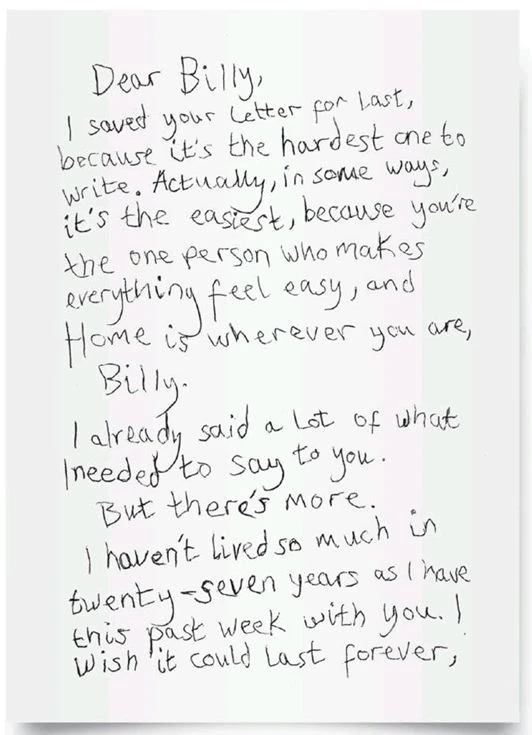 Dear Billy,
I saved your letter for last,
because it's the hardest one to
write. Actually, in some ways,
it's the easiest, because you're
the one person who makes
everything feel easy, and
Home is wherever you are,
Billy.
I already said a lot of what
I needed to say to you.
But there's more.
I haven't lived so much in
twenty-seven years as I have
this past week with you. I
wish it could last forever,